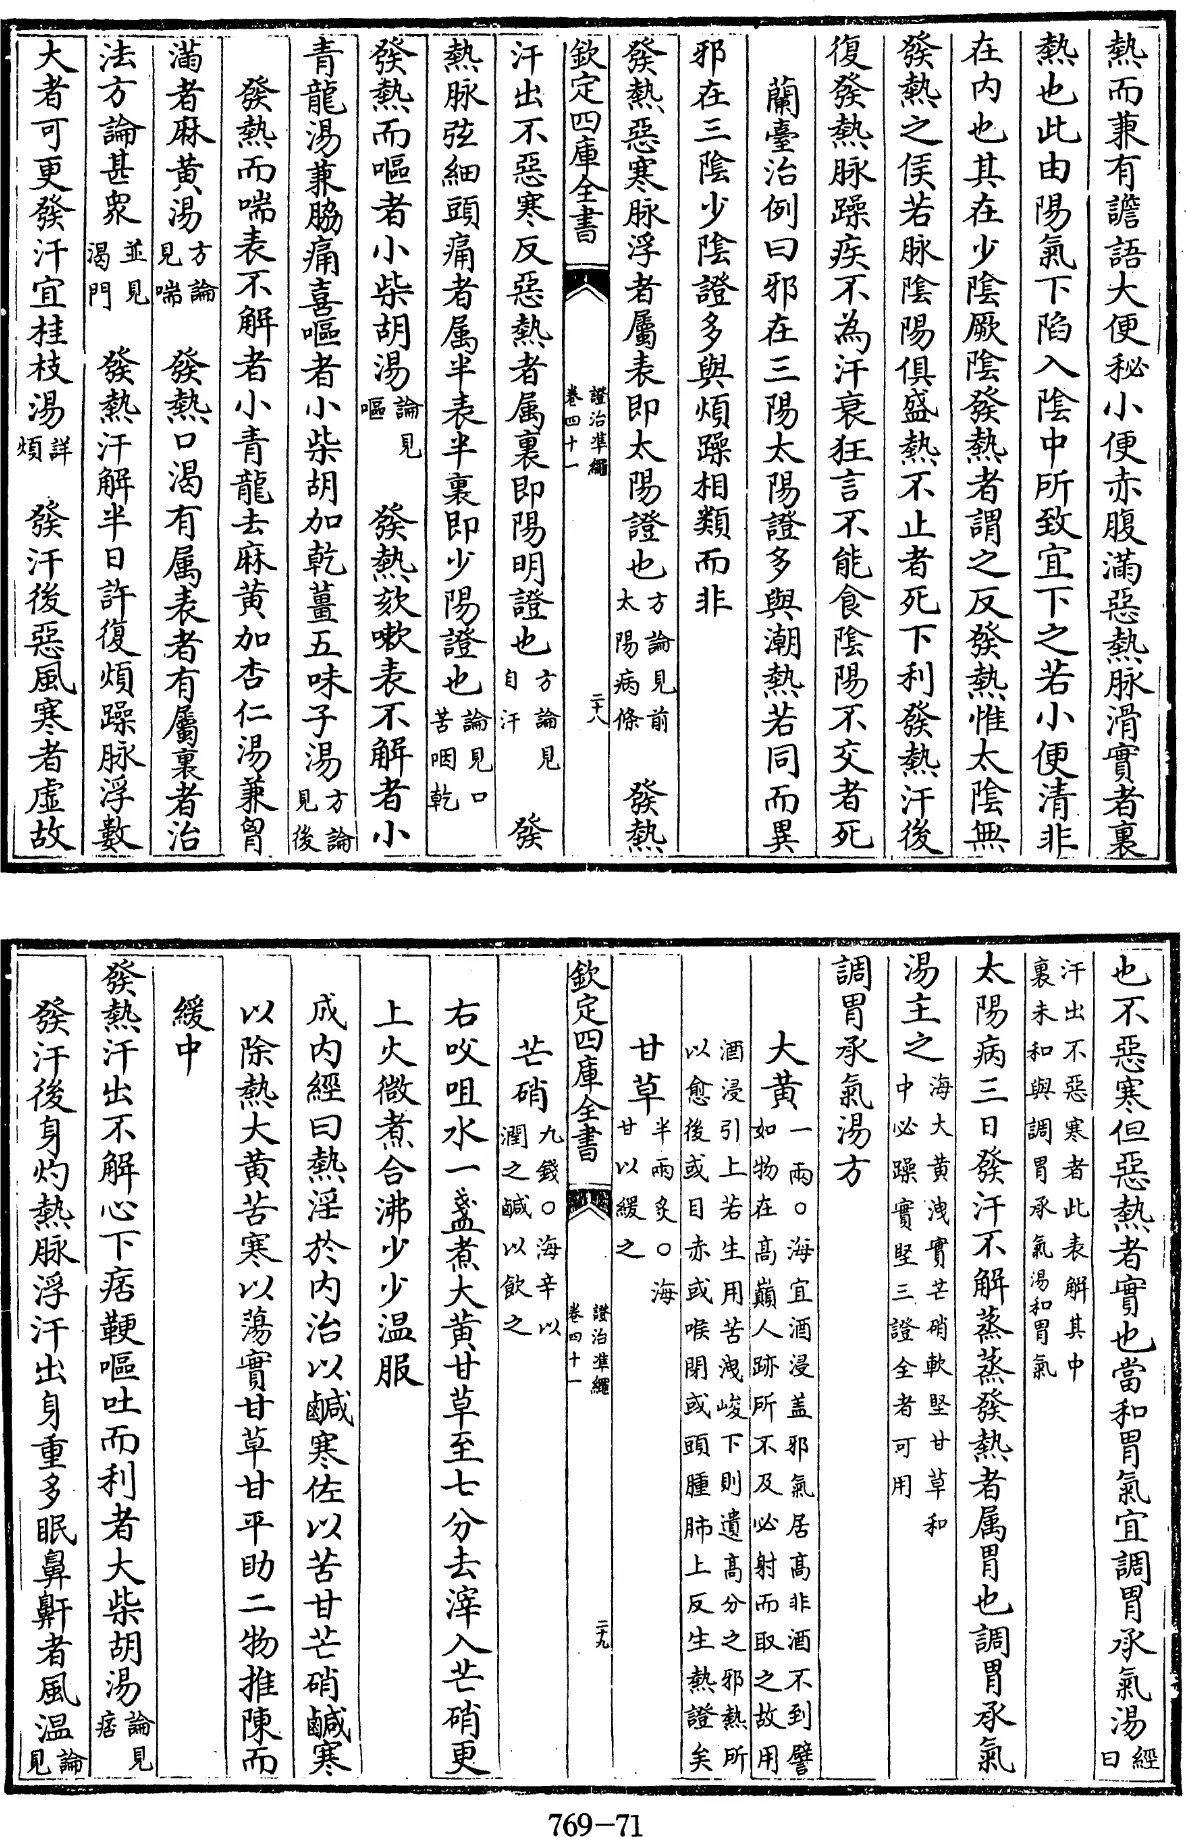 熱而兼有譫語大便秘小便赤腹滿惡熱脉滑實者裏
熱也此由陽氣下陷入陰中所致宜下之若小便清非
在内也其在少陰厥陰發熱者謂之反發熱惟太陰無
發熱之俟若脉陰陽俱盛熱不止者死下利發熱汗後
復發熱脉躁疾不為汗衰狂言不能食陰陽不交者死
蘭臺治例曰邪在三陽太陽證多與潮熱若同而異
邪在三陰少陰證多與煩躁相類而非
發熱惡寒脉浮者屬表即太陽證也方論見前太陽病條 發熱
欽定四庫全書 證治準繩 卷四十一 二十八
汗出不惡寒反惡熱者属裏即陽明證也方論見自汗 發
熱脉弦細頭痛者属半表半裏即少陽證也論見口苦咽乾
發熱而嘔者小柴胡湯論見嘔 發熱欬嗽表不解者小
青龍湯兼脇痛喜嘔者小柴胡加乾薑五味子湯方論見後
發熱而喘表不解者小青龍去麻黄加杏仁湯兼胷
滿者麻黄湯方論見喘 發熱口渴有属表者有屬裏者治
法方論甚衆並見渴門 發熱汗解半日許復煩躁脉浮數
大者可更發汗宜桂枝湯詳煩 發汗後惡風寒者虛故
也不惡寒但惡熱者實也當和胃氣宜調胃承氣湯經曰
汗出不惡寒者此表解其中裏未和與調胃承氣湯和胃氣
太陽病三日發汗不解蒸蒸發熱者属胃也調胃承氣
湯主之海大黄洩實芒硝軟堅甘草和中必躁實堅三證全者可用
調胃承氣湯方
大黄一兩○海宜酒浸盖邪氣居高非酒不到譬如物在高巔人跡所不及必射而取之故用
酒浸引上若生用苦洩峻下則遺高分之邪熱所以愈後或目赤或喉閉或頭腫肺上反生熱證矣
甘草半兩炙○海甘以緩之
欽定四庫全書 證治準繩 卷四十一 二十九
芒硝九錢○海辛以潤之鹹以飲之
右㕮咀水一盞煮大黄甘草至七分去滓入芒硝更
上火微煮合沸少少温服
成内經曰熱淫於内治以鹹寒佐以苦甘芒硝鹹寒
以除熱大黄苦寒以蕩實甘草甘平助二物推陳而
緩中
發熱汗出不解心下痞鞕嘔吐而利者大柴胡湯論見痞
發汗後身灼熱脉浮汗出身重多眠鼻鼾者風温論見
769-71